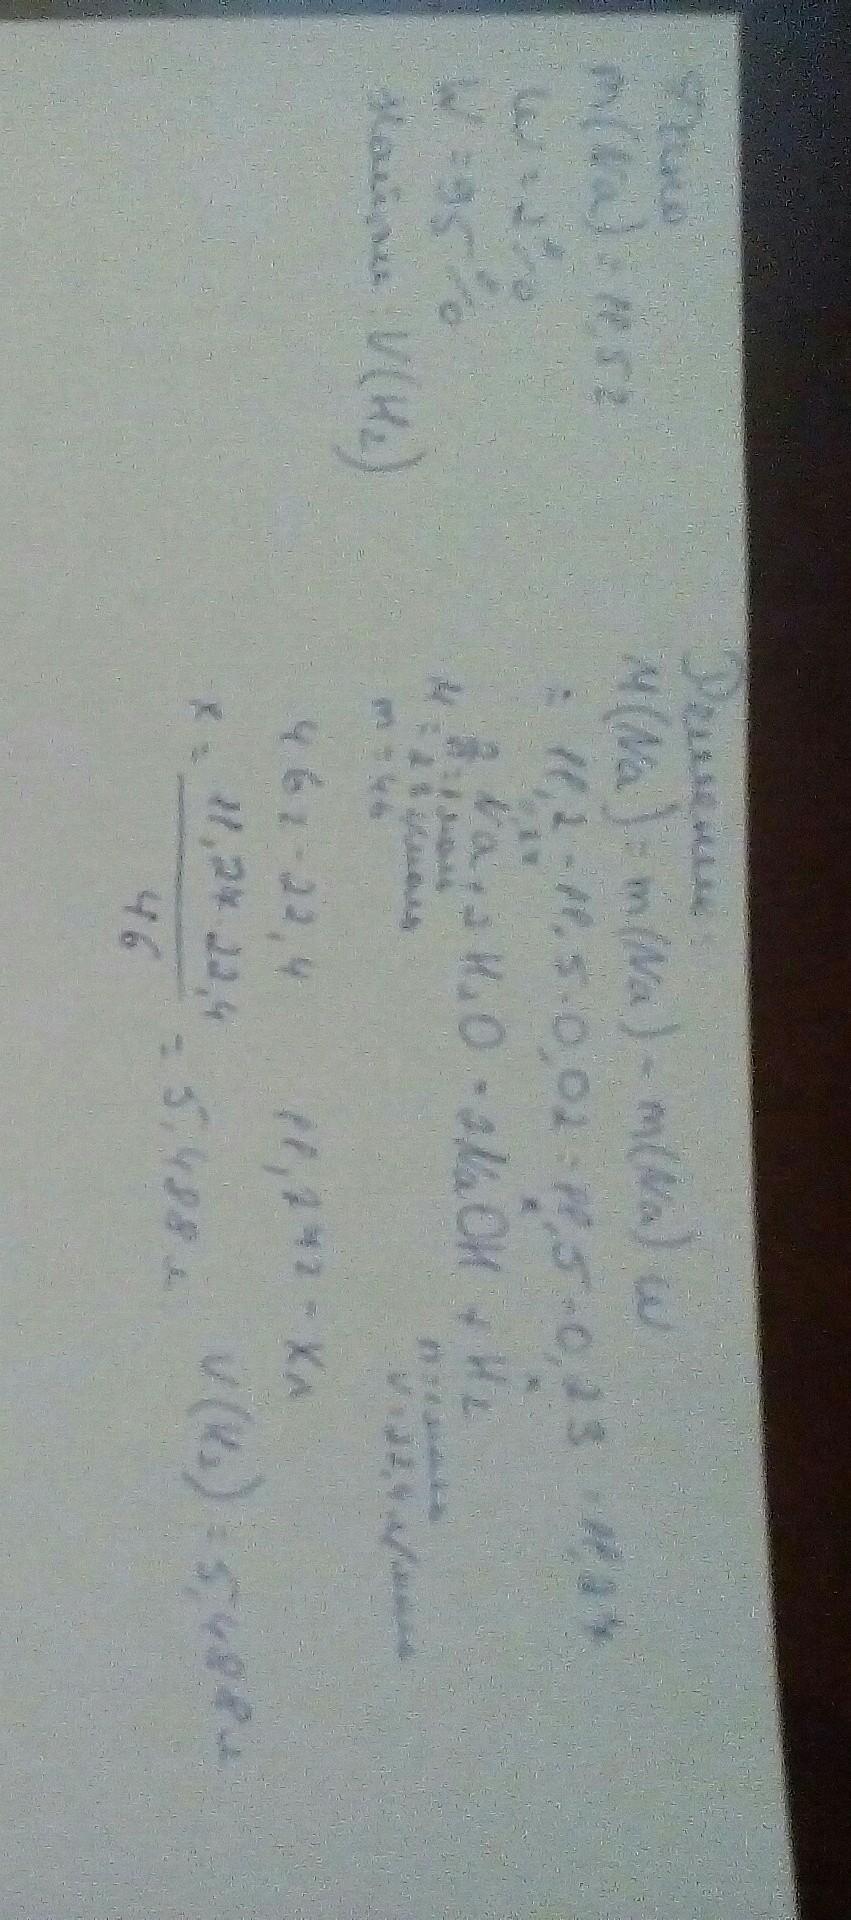 Дано
m(Na) = 11,5г
W = 2%
W = 95%
Найти: V(H₂)
Решение:
M(Na) = m(Na) - m(Na) W
= 11,2 - 11,5·0,02 = 11,5 - 0,23 = 11,27
2Na + 2H₂O = 2NaOH + H₂
m = 46
V = 22,4 л/моль
46г - 22,4 11,27г - xл
x = 11,27 · 22,4 / 46 = 5,488 л V(H₂) = 5,488 л